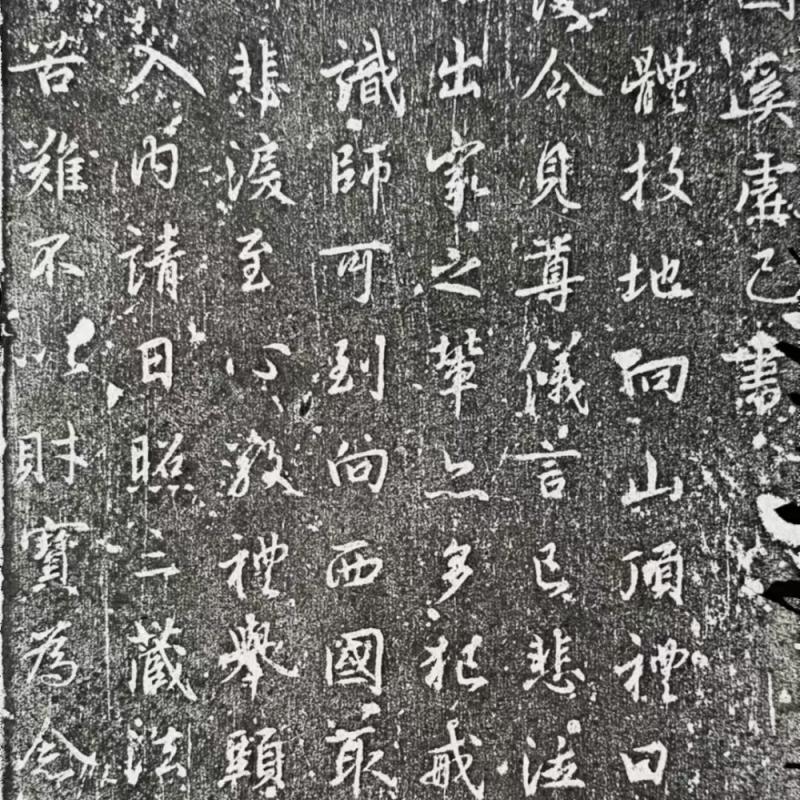 奚虛己書
體投地向山頂禮曰
今見尊儀言已悲泣
出家之輩亦多犯戒
識師可到向西國取
悲淚至心敬禮舉頭
入內請日照三藏法
苦難不以財寶為念